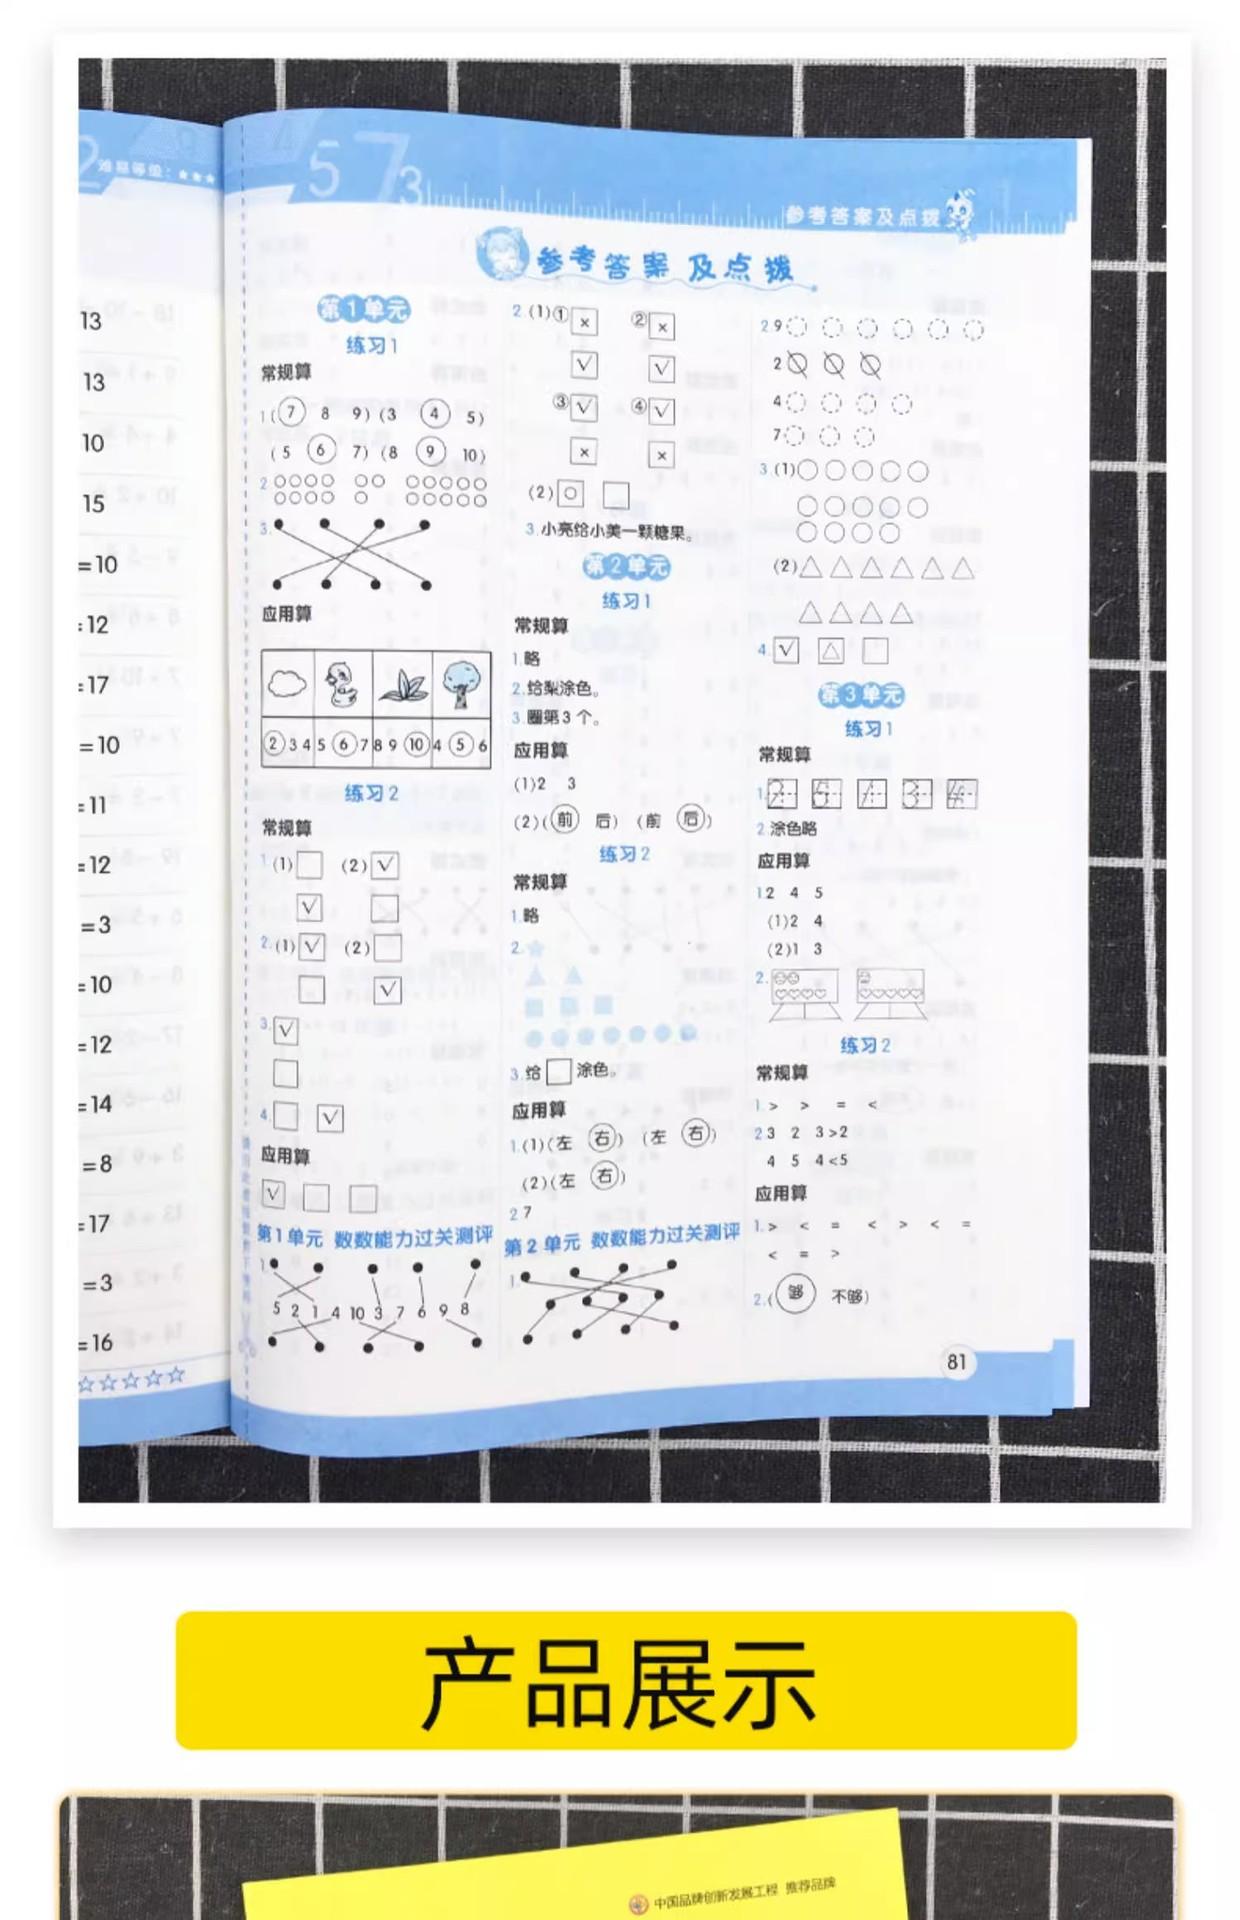 难易等级：★★★
13
13
10
15
=10
=12
=17
=10
=11
=12
=3
=10
=12
=14
=8
=17
=3
=16
☆☆☆☆☆
5 7 3
参考答案及点拨
参考答案及点拨
第1单元
练习1
常规算
1.(⑦ 8 9) (3 ④ 5)
(5 ⑥ 7) (8 ⑨ 10)
2.
3.
应用算
② 3 4 5 ⑥ 7 8 9 ⑩ 4 ⑤ 6
练习2
常规算
1.(1)□ (2)☑
☑ □
2.(1)☑ (2)□
□ ☑
3.☑
□
4.□ ☑
应用算
☑ □ □
第1单元 数数能力过关测评
1.
5 2 1 4 10 3 7 6 9 8
2.(1)① × ② ×
√ √
③ √ ④ √
× ×
(2) ○ □
3.小亮给小美一颗糖果。
第2单元
练习1
常规算
1.略
2.给梨涂色。
3.圈第3个。
应用算
(1)2 3
(2)(前 后) (前 后)
练习2
常规算
1.略
2.
3.给□涂色。
应用算
1.(1)(左 右) (左 右)
(2)(左 右)
2.7
第2单元 数数能力过关测评
1.
2.9
2
4
7
3.(1)○○○○○
○○○○○
○○○○
(2)△△△△△△
△△△△
4.☑ △ □
第3单元
练习1
常规算
1. 2 5 1 3 4
2.涂色略
应用算
1.2 4 5
(1)2 4
(2)1 3
2.
练习2
常规算
1.> > = <
2.3 2 3>2
4 5 4<5
应用算
1.> < = < > < =
< = >
2.(够 不够)
81
产品展示
中国品牌创新发展工程 推荐品牌